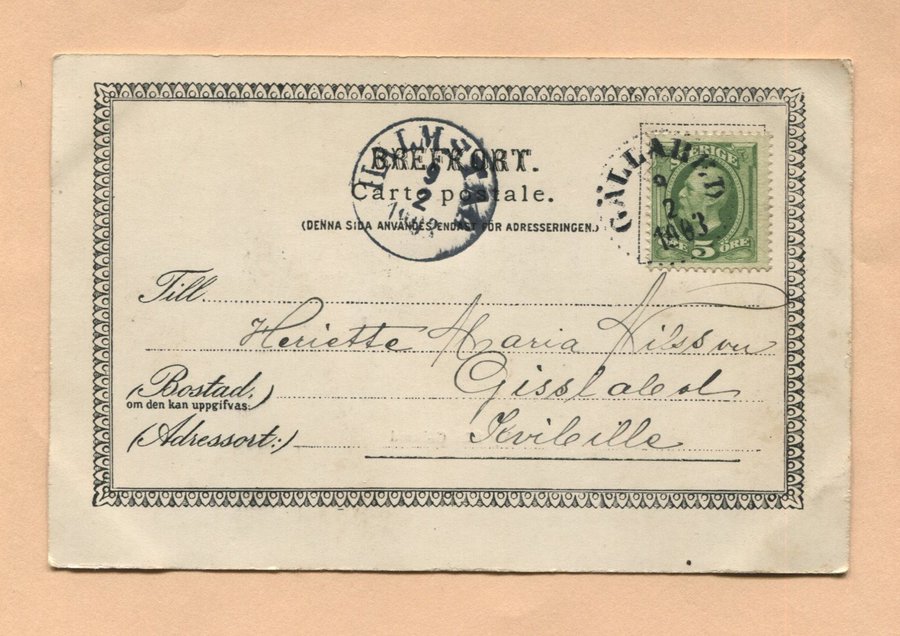 BREFKORT.
Carte postale.
(DENNA SIDA ANVÄNDES ENDAST FÖR ADRESSERINGEN.)
HALMSTAD
9
2
GÄLLARED
9
2
1903
SVERIGE
5 ÖRE
Till
Heriette Maria Nilsson
(Bostad,
om den kan uppgifvas:)
Kvibille
(Adressort:)